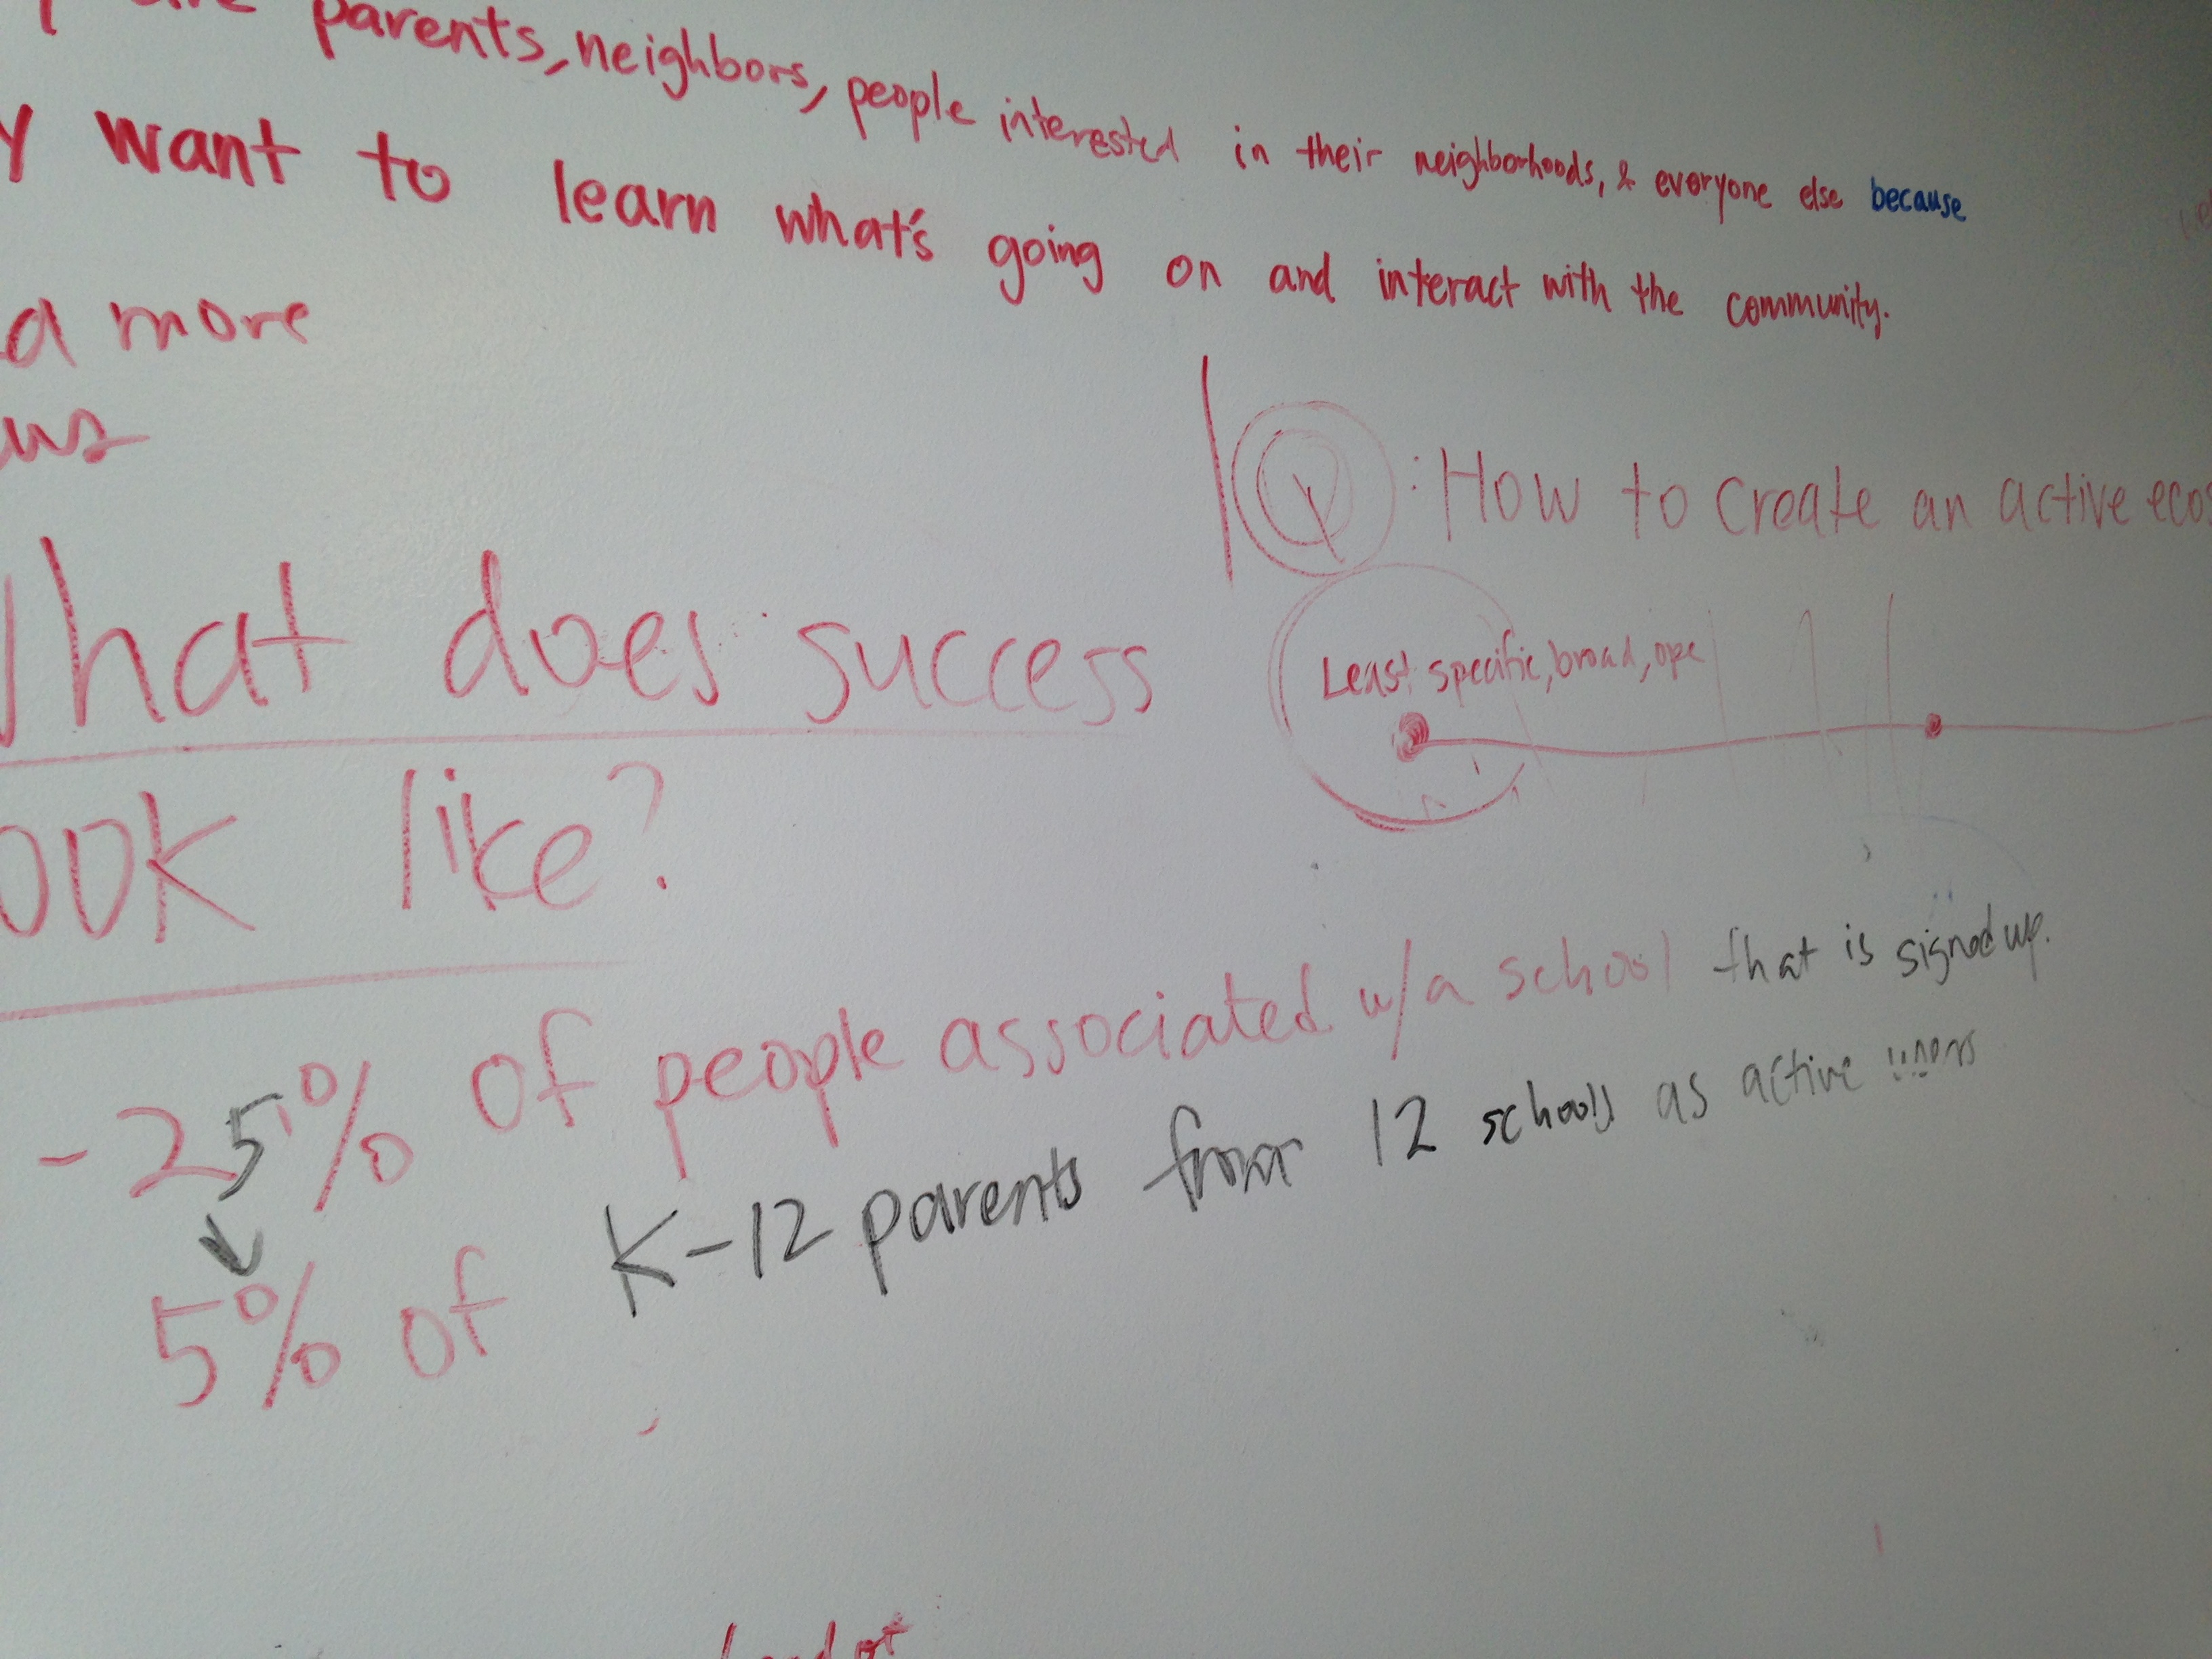 are parents, neighbors, people interested in their neighborhoods, & everyone else because
y want to learn what's going on and interact with the community.
a more
us
Q: How to create an active ecos
What does success
Least specific, broad, ope
ook like?
-25% of people associated w/a school that is signed up.
5% of K-12 parents from 12 schools as active users